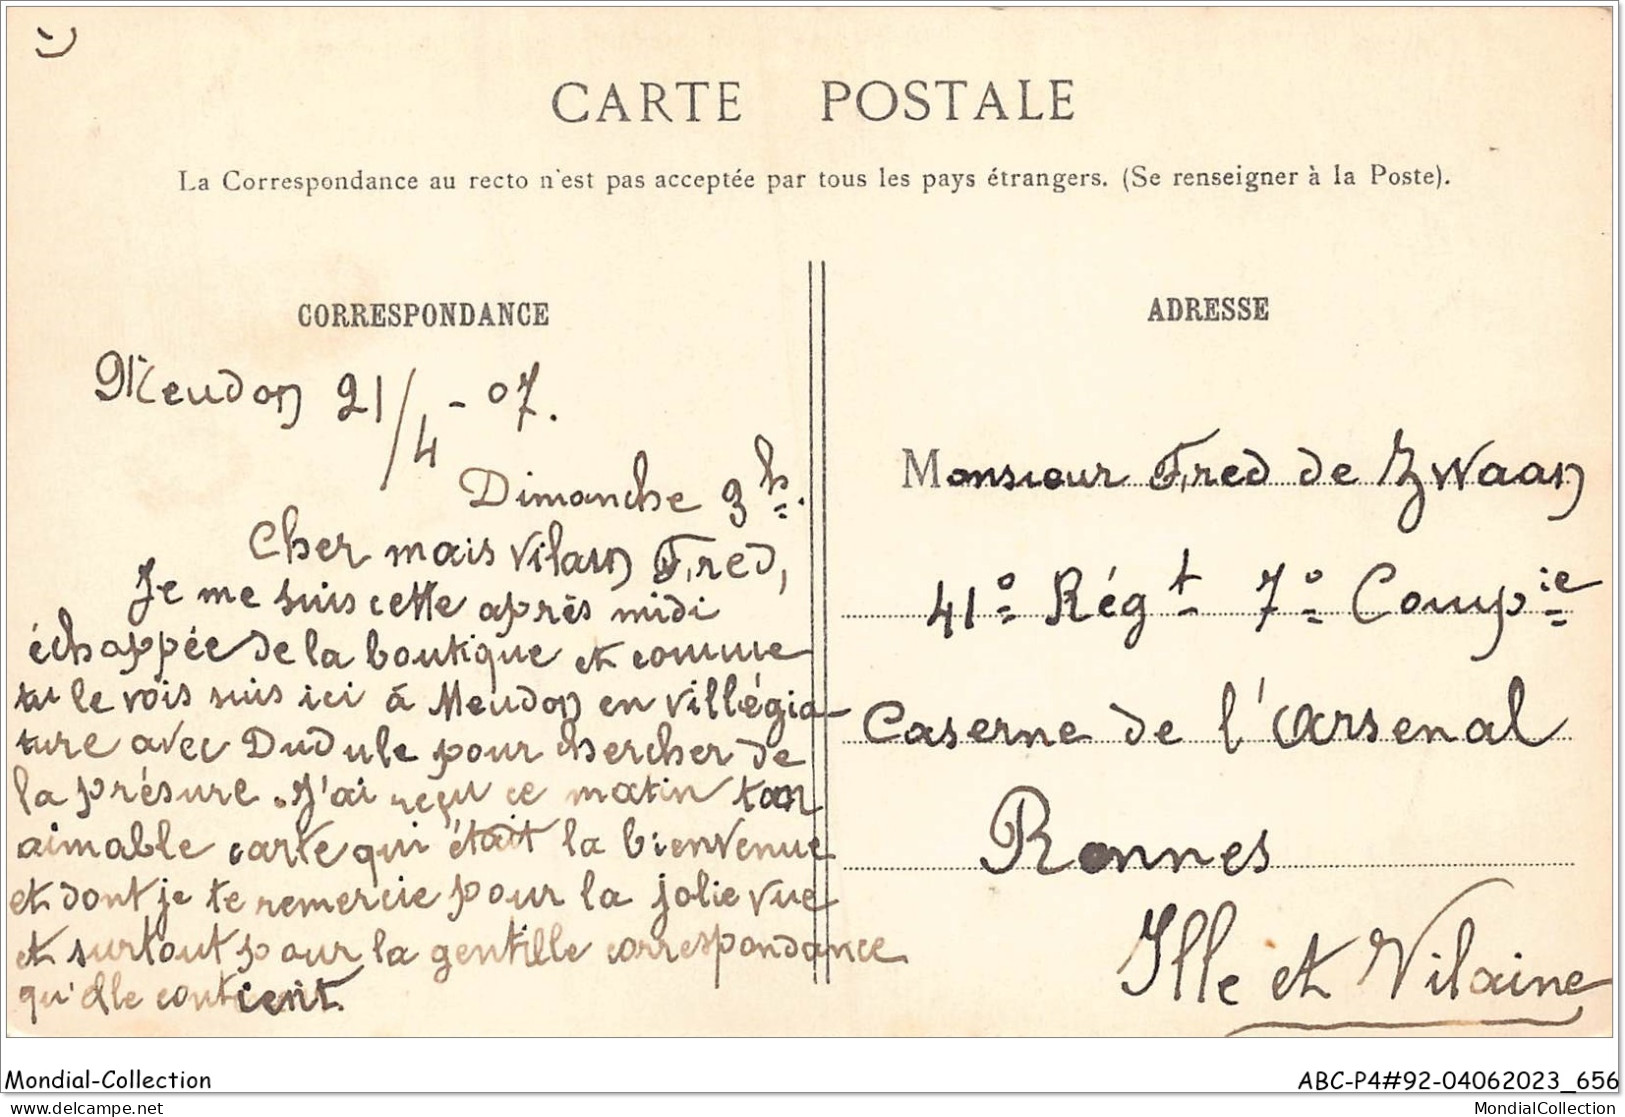 CARTE POSTALE
La Correspondance au recto n'est pas acceptée par tous les pays étrangers. (Se renseigner à la Poste).
CORRESPONDANCE
Meudon 21/4 - 07.
Dimanche 3h.
Cher mais vilain Fred,
Je me suis cette après midi
échappée de la boutique et comme
tu le vois suis ici à Meudon en villégia-
ture avec Dudule pour chercher de
la présure. J'ai reçu ce matin ton
aimable carte qui était la bienvenue
et dont je te remercie pour la jolie vue
et surtout pour la gentille correspondance
qu'elle contient.
ADRESSE
Monsieur Fred de Zwaan
41e Régt 7e Compie
Caserne de l'Arsenal
Rennes
Ille et Vilaine
Mondial-Collection
ABC-P4#92-04062023_656
delcampe.net
MondialCollection